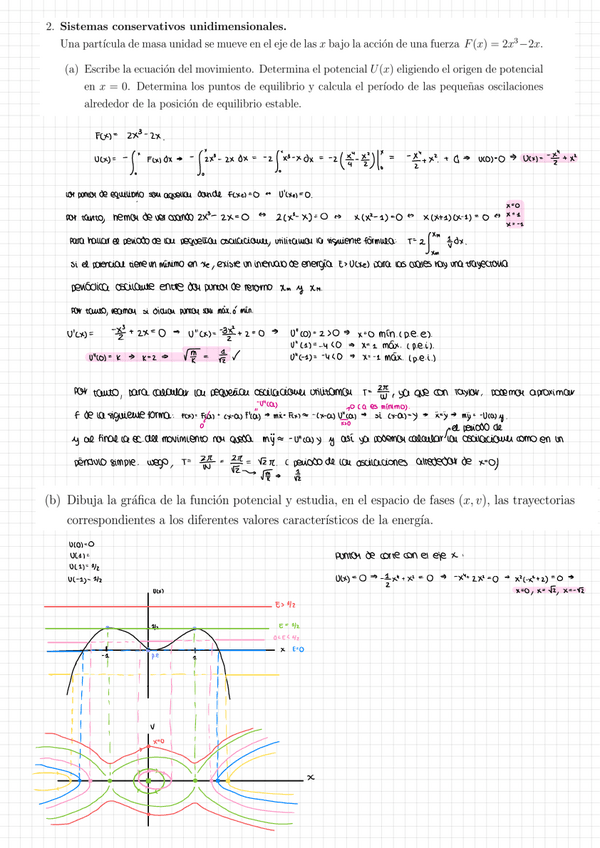 2. Sistemas conservativos unidimensionales.
Una partícula de masa unidad se mueve en el eje de las x bajo la acción de una fuerza F(x) = 2x³−2x.
(a) Escribe la ecuación del movimiento. Determina el potencial U(x) eligiendo el origen de potencial
en x = 0. Determina los puntos de equilibrio y calcula el período de las pequeñas oscilaciones
alrededor de la posición de equilibrio estable.
F(x) = 2x³ - 2x.
U(x) = - ∫₀ˣ F(x) dx → - ∫₀ˣ 2x³ - 2x dx = -2 ∫₀ˣ x³ - x dx = -2 (x⁴/4 - x²/2)|₀ˣ = -x⁴/2 + x² + C → U(0)=0 → U(x) = -x⁴/2 + x²
Los puntos de equilibrio son aquellos donde F(xe)=0 ↔ U'(xe)=0.
Por tanto, hemos de ver cuando 2x³-2x=0 ↔ 2(x³-x)=0 ↔ x(x²-1)=0 ↔ x(x+1)(x-1)=0 ↔ x=0 x=1 x=-1
Para hallar el periodo de las pequeñas oscilaciones, utilizamos la siguiente fórmula: T=2 ∫ 1/v dx.
Si el potencial tiene un mínimo en xe, existe un intervalo de energía E>U(xe) para los cuales hay una trayectoria
periódica oscilante entre dos puntos de retorno xm y xM.
Por tanto, veamos si dichos puntos son máx. ó mín.
U'(x) = -x³/2 + 2x = 0 → U''(x) = -3x²/2 + 2 = 0 → U''(0)=2>0 → x=0 mín. (p.e.e).
U''(1)=-4<0 → x=1 máx. (p.e.i).
U''(0) = K → K=2 → √(m/K) = 1/√2 ✓ U''(-1)=-4<0 → x=-1 máx. (p.e.i.)
Por tanto, para calcular las pequeñas oscilaciones utilizamos T = 2π/ω, ya que con Taylor, podemos aproximar
-U''(a) 0 (a es mínimo).
F de la siguiente forma: F(x) = F(a) + (x-a) F'(a) → mẍ = F(x) ≈ -(x-a) U''(a) → si (x-a)=y → ẍ=ÿ → mÿ = -U''(a) y.
0 x=0 el periodo de
y al final la ec del movimiento nos queda mÿ ≈ -U''(a) y y así ya podemos calcular las oscilaciones como en un
péndulo simple. Luego, T = 2π/ω = 2π/√2 = √2 π. (periodo de las oscilaciones alrededor de x=0)
√(m/K) → 1/√2
(b) Dibuja la gráfica de la función potencial y estudia, en el espacio de fases (x, v), las trayectorias
correspondientes a los diferentes valores característicos de la energía.
U(0)=0
U(1)=
U(1)= 1/2
U(-1)= 1/2
Puntos de corte con el eje x.
U(x) = 0 → -1/2 x⁴ + x² = 0 → -x⁴ + 2x² = 0 → x²(-x²+2) = 0 →
x=0, x=√2, x=-√2
U(x)
E > 1/2
1/2
E = 1/2
0<E<1/2
x E=0
-1 1
V
x=0
x